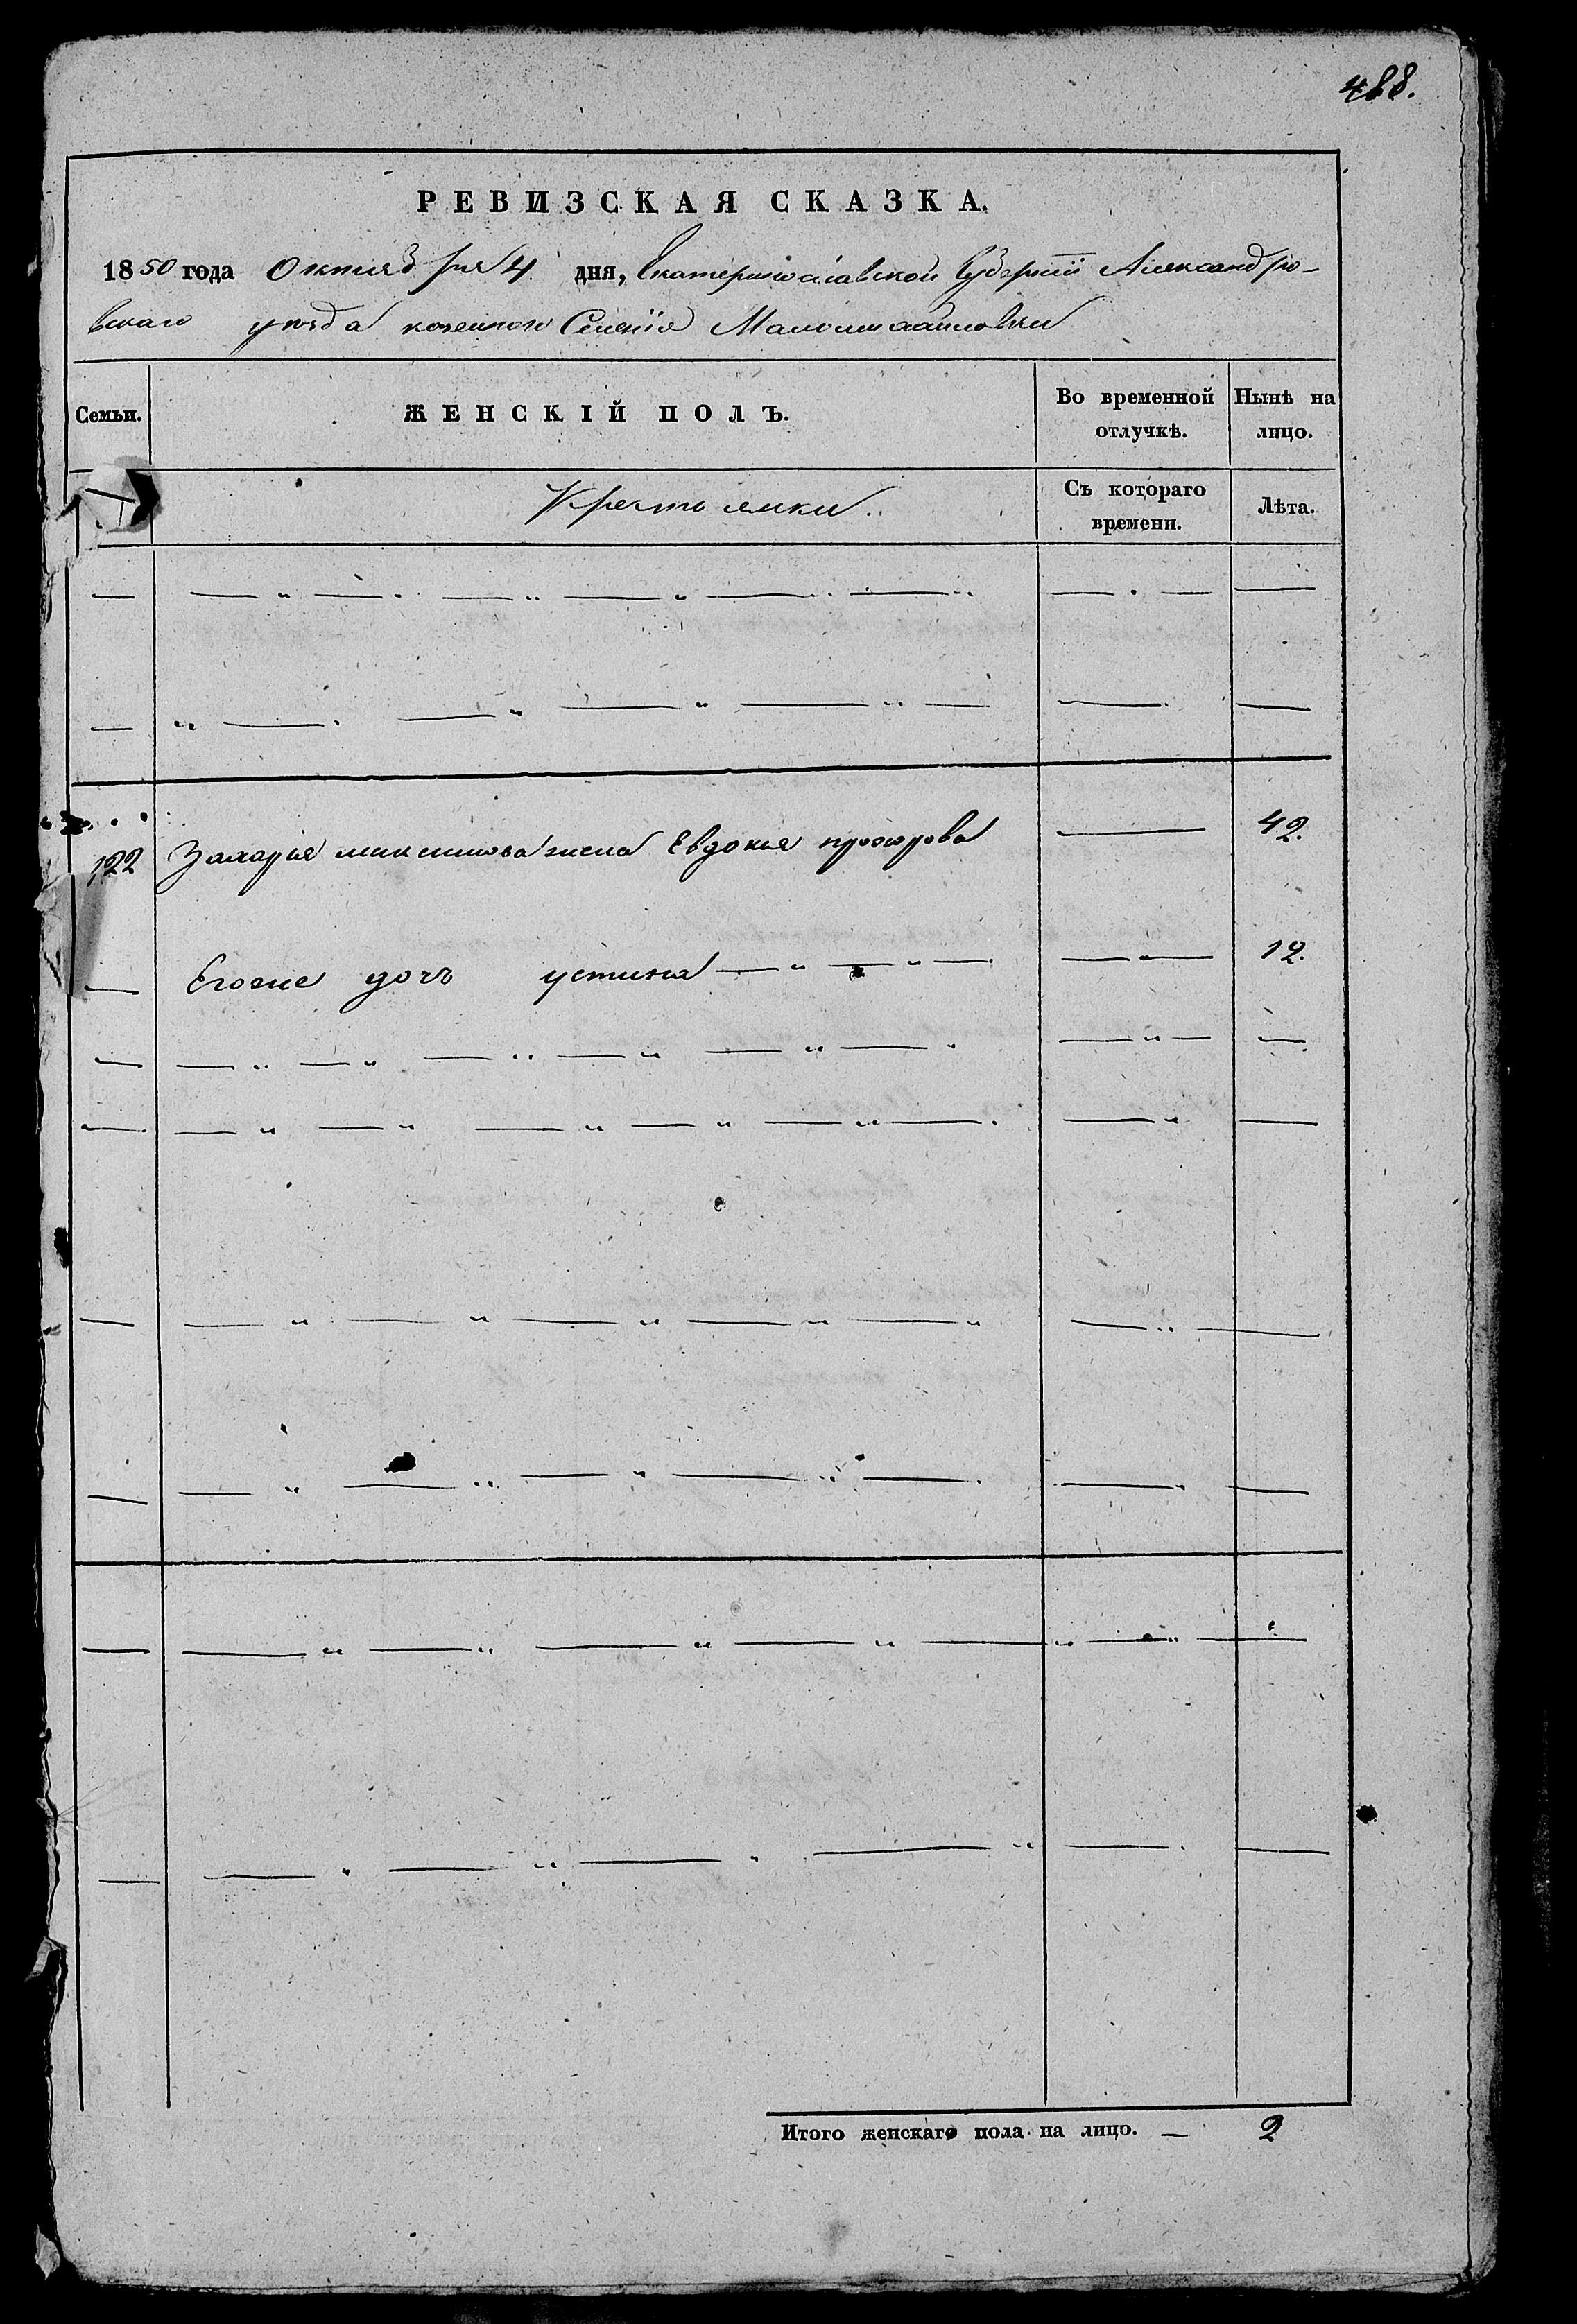 488.
РЕВИЗСКАЯ СКАЗКА.
1850 года Октября 4 дня, Екатеринославской Губернии Александро-
вскаго уезда казенного Селения Маломихайловки
Семьи. ЖЕНСКІЙ ПОЛЪ. Во временной отлучкѣ. Нынѣ на лицо.
Крестьянки. Съ котораго времени. Лѣта.
122 Захарія максимова жена Евдокия прохорова — 42.
— Егоже дочь устина — 12.
Итого женскаго пола на лицо. — 2